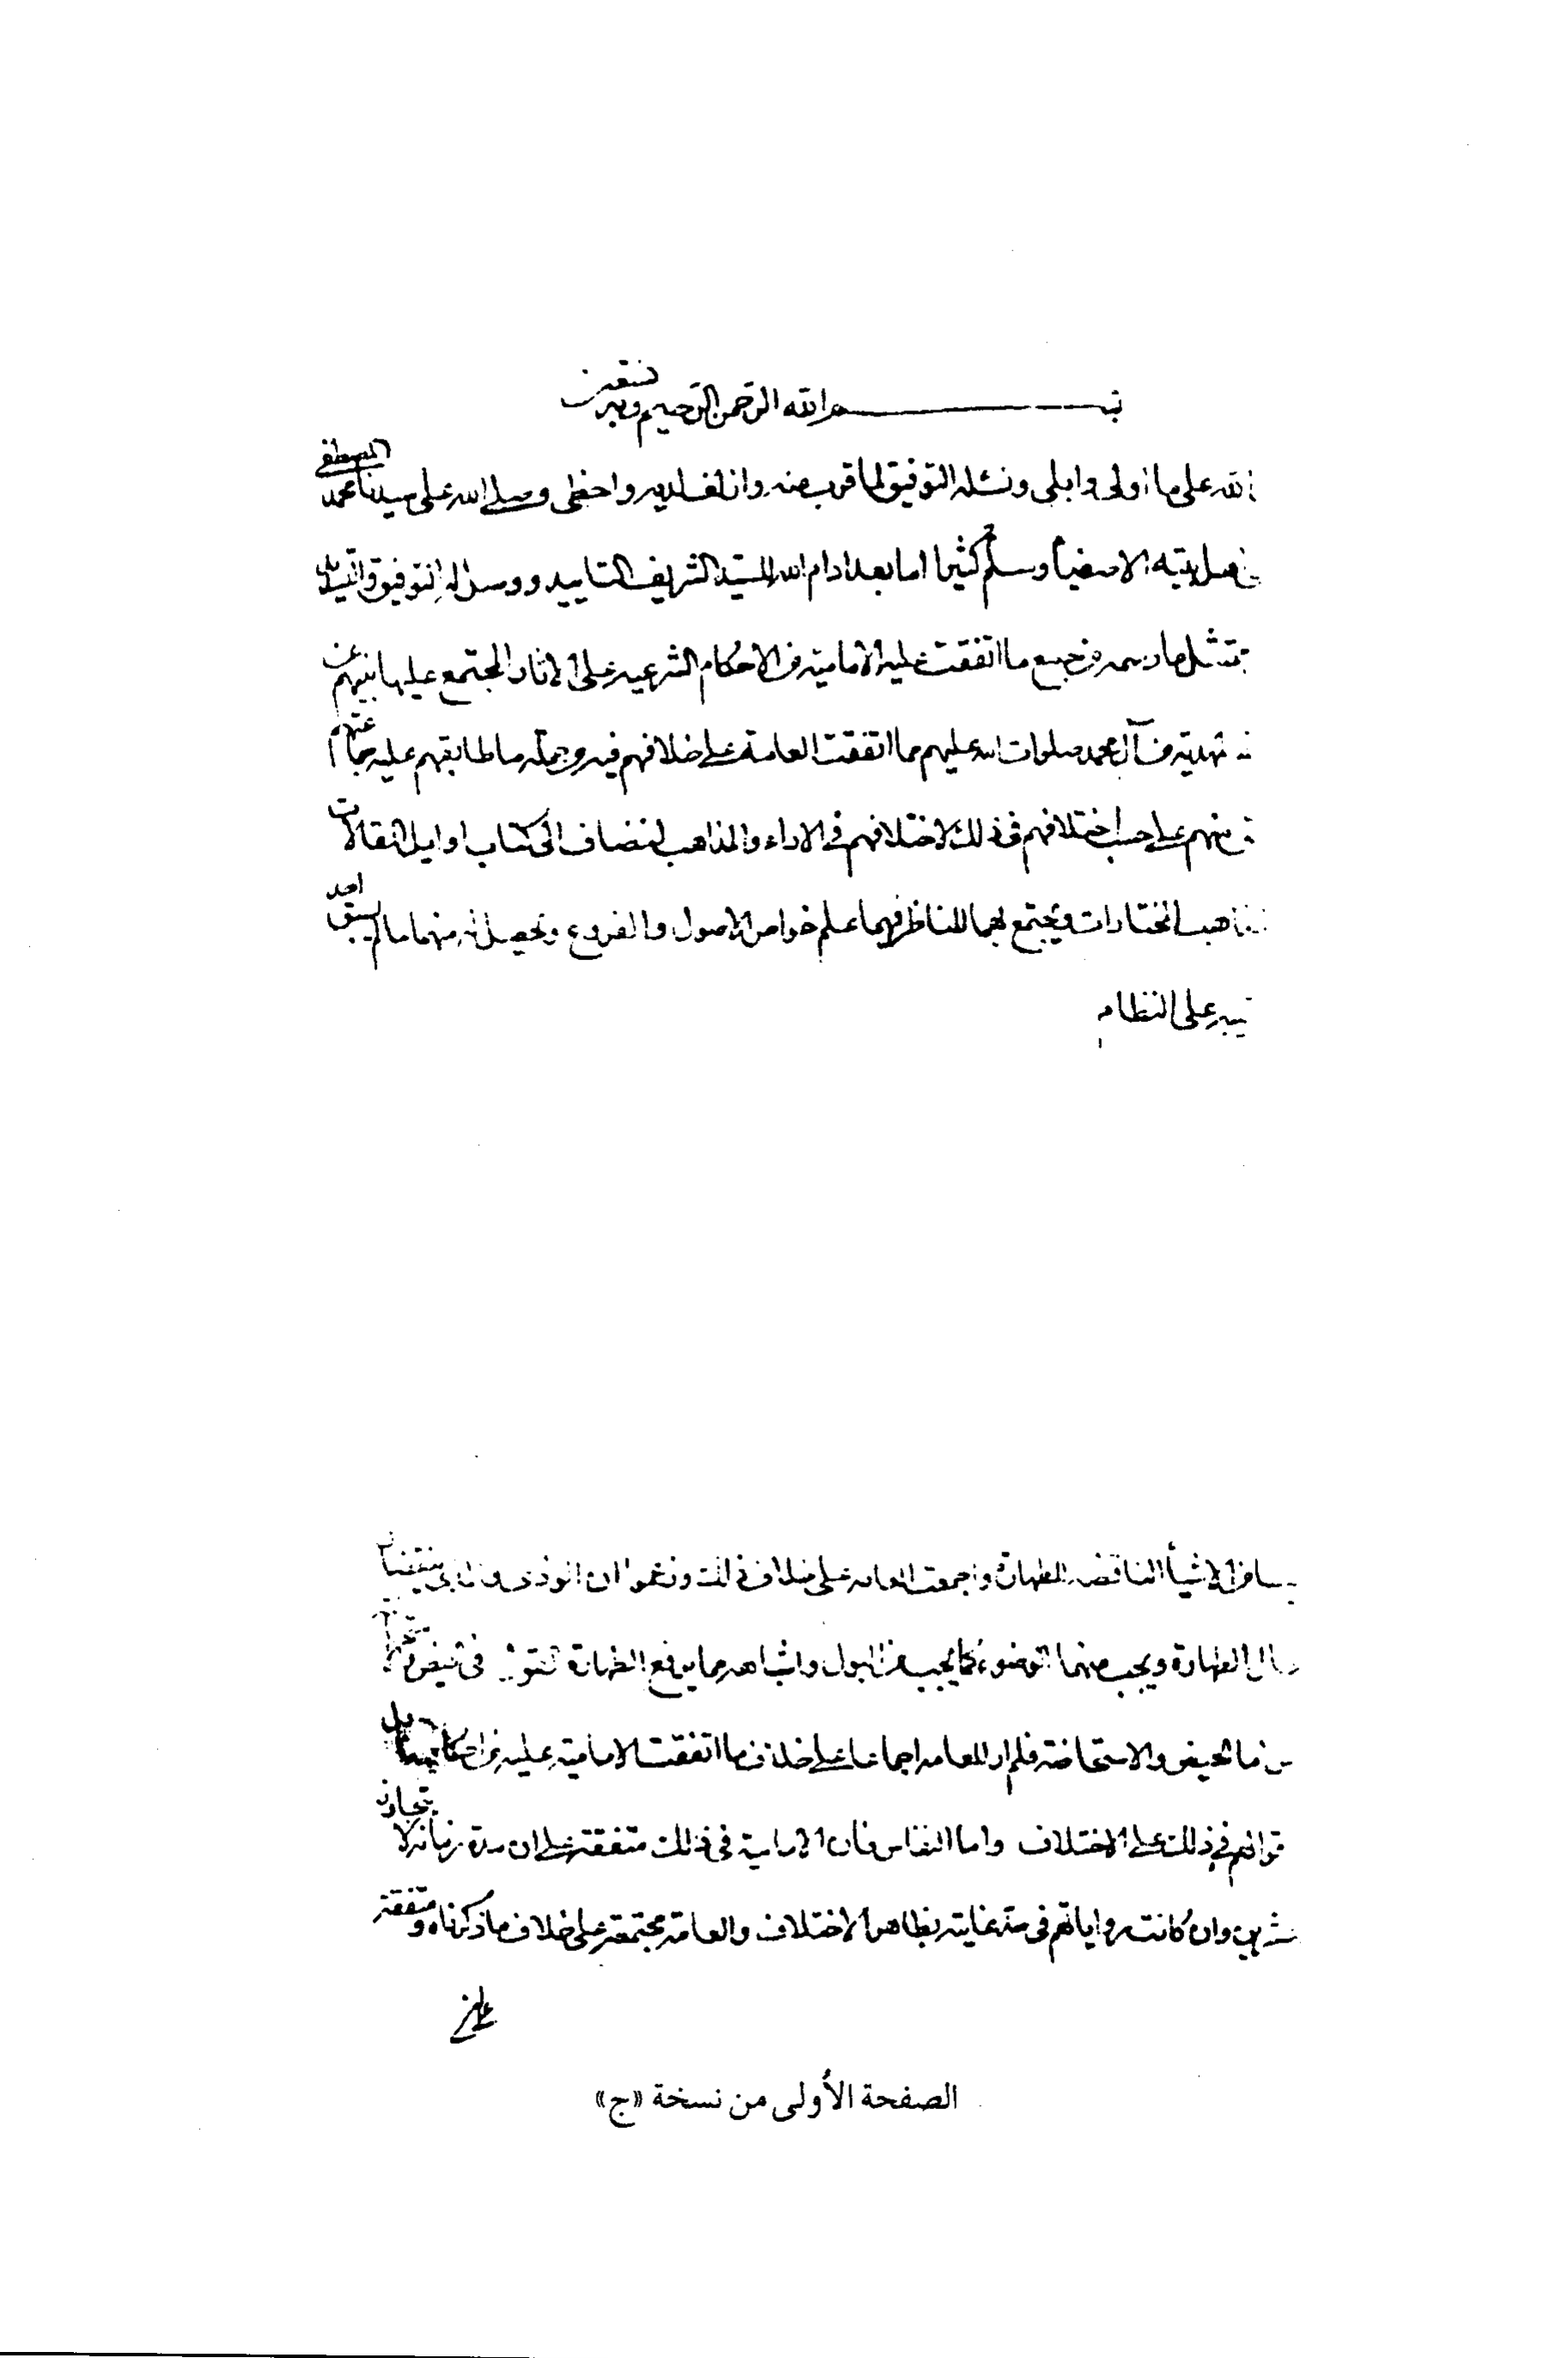 بسم الله الرحمن الرحيم وبه نستعين
الله على ما اولى وابلى ونسئله التوفيق لما قرب منه وازلف لديه واحظى وصلى الله على سيدنا محمد المصطفى
اهل بيته الاصفيأ وسلم كثيرا اما بعد ادام الله للسيد الشريف التاييد ووصل له التوفيق والتسديد
ممتثل ما رسمه من جميع ما اتفقت عليه الامامية من الاحكام الشرعيه على الاثار المجتمع عليها بينهم عن
مهدية من آل محمد صلوات الله عليهم مما اتفقت العامة على خلافهم فيه وجملة ما طابقهم عليه جماعتهم
منهم على حسب اختلافهم في ذلك لاختلافهم في الاراء والمذاهب لنضاف الى كتاب اوايل المقالات
المذاهب المختارات ويجتمع بهما للناظر فيهما علم خواص الاصول والفروع وتحصل له منهما ما لم يسبق احد
على النظام
من الاشيأ الناقضه للطهارة واجمعت العامه على خلاف ذلك وزعموا ان الوذى والمذى ينقضان
الطهارة ويجب منهما الوضوء كما يجب من البول واشباهه مما يرفع الطهارة القول في الحيض
فاما الحيض والاستحاضة فلم ار للعامه اجماعا على خلاف ما اتفقت الامامية عليه من احكامهما بل
اقوالهم في ذلك على الاختلاف واما النفاس فان الامامية في ذلك متفقة على ان مدة زمانه لا تتجاوز
عشرين وان كانت رواياتهم في حد غايته بظاهر الاختلاف والعامة مجتمعة على خلاف ما ذكرناه ومتفقة
على
الصفحة الأولى من نسخة «ج»